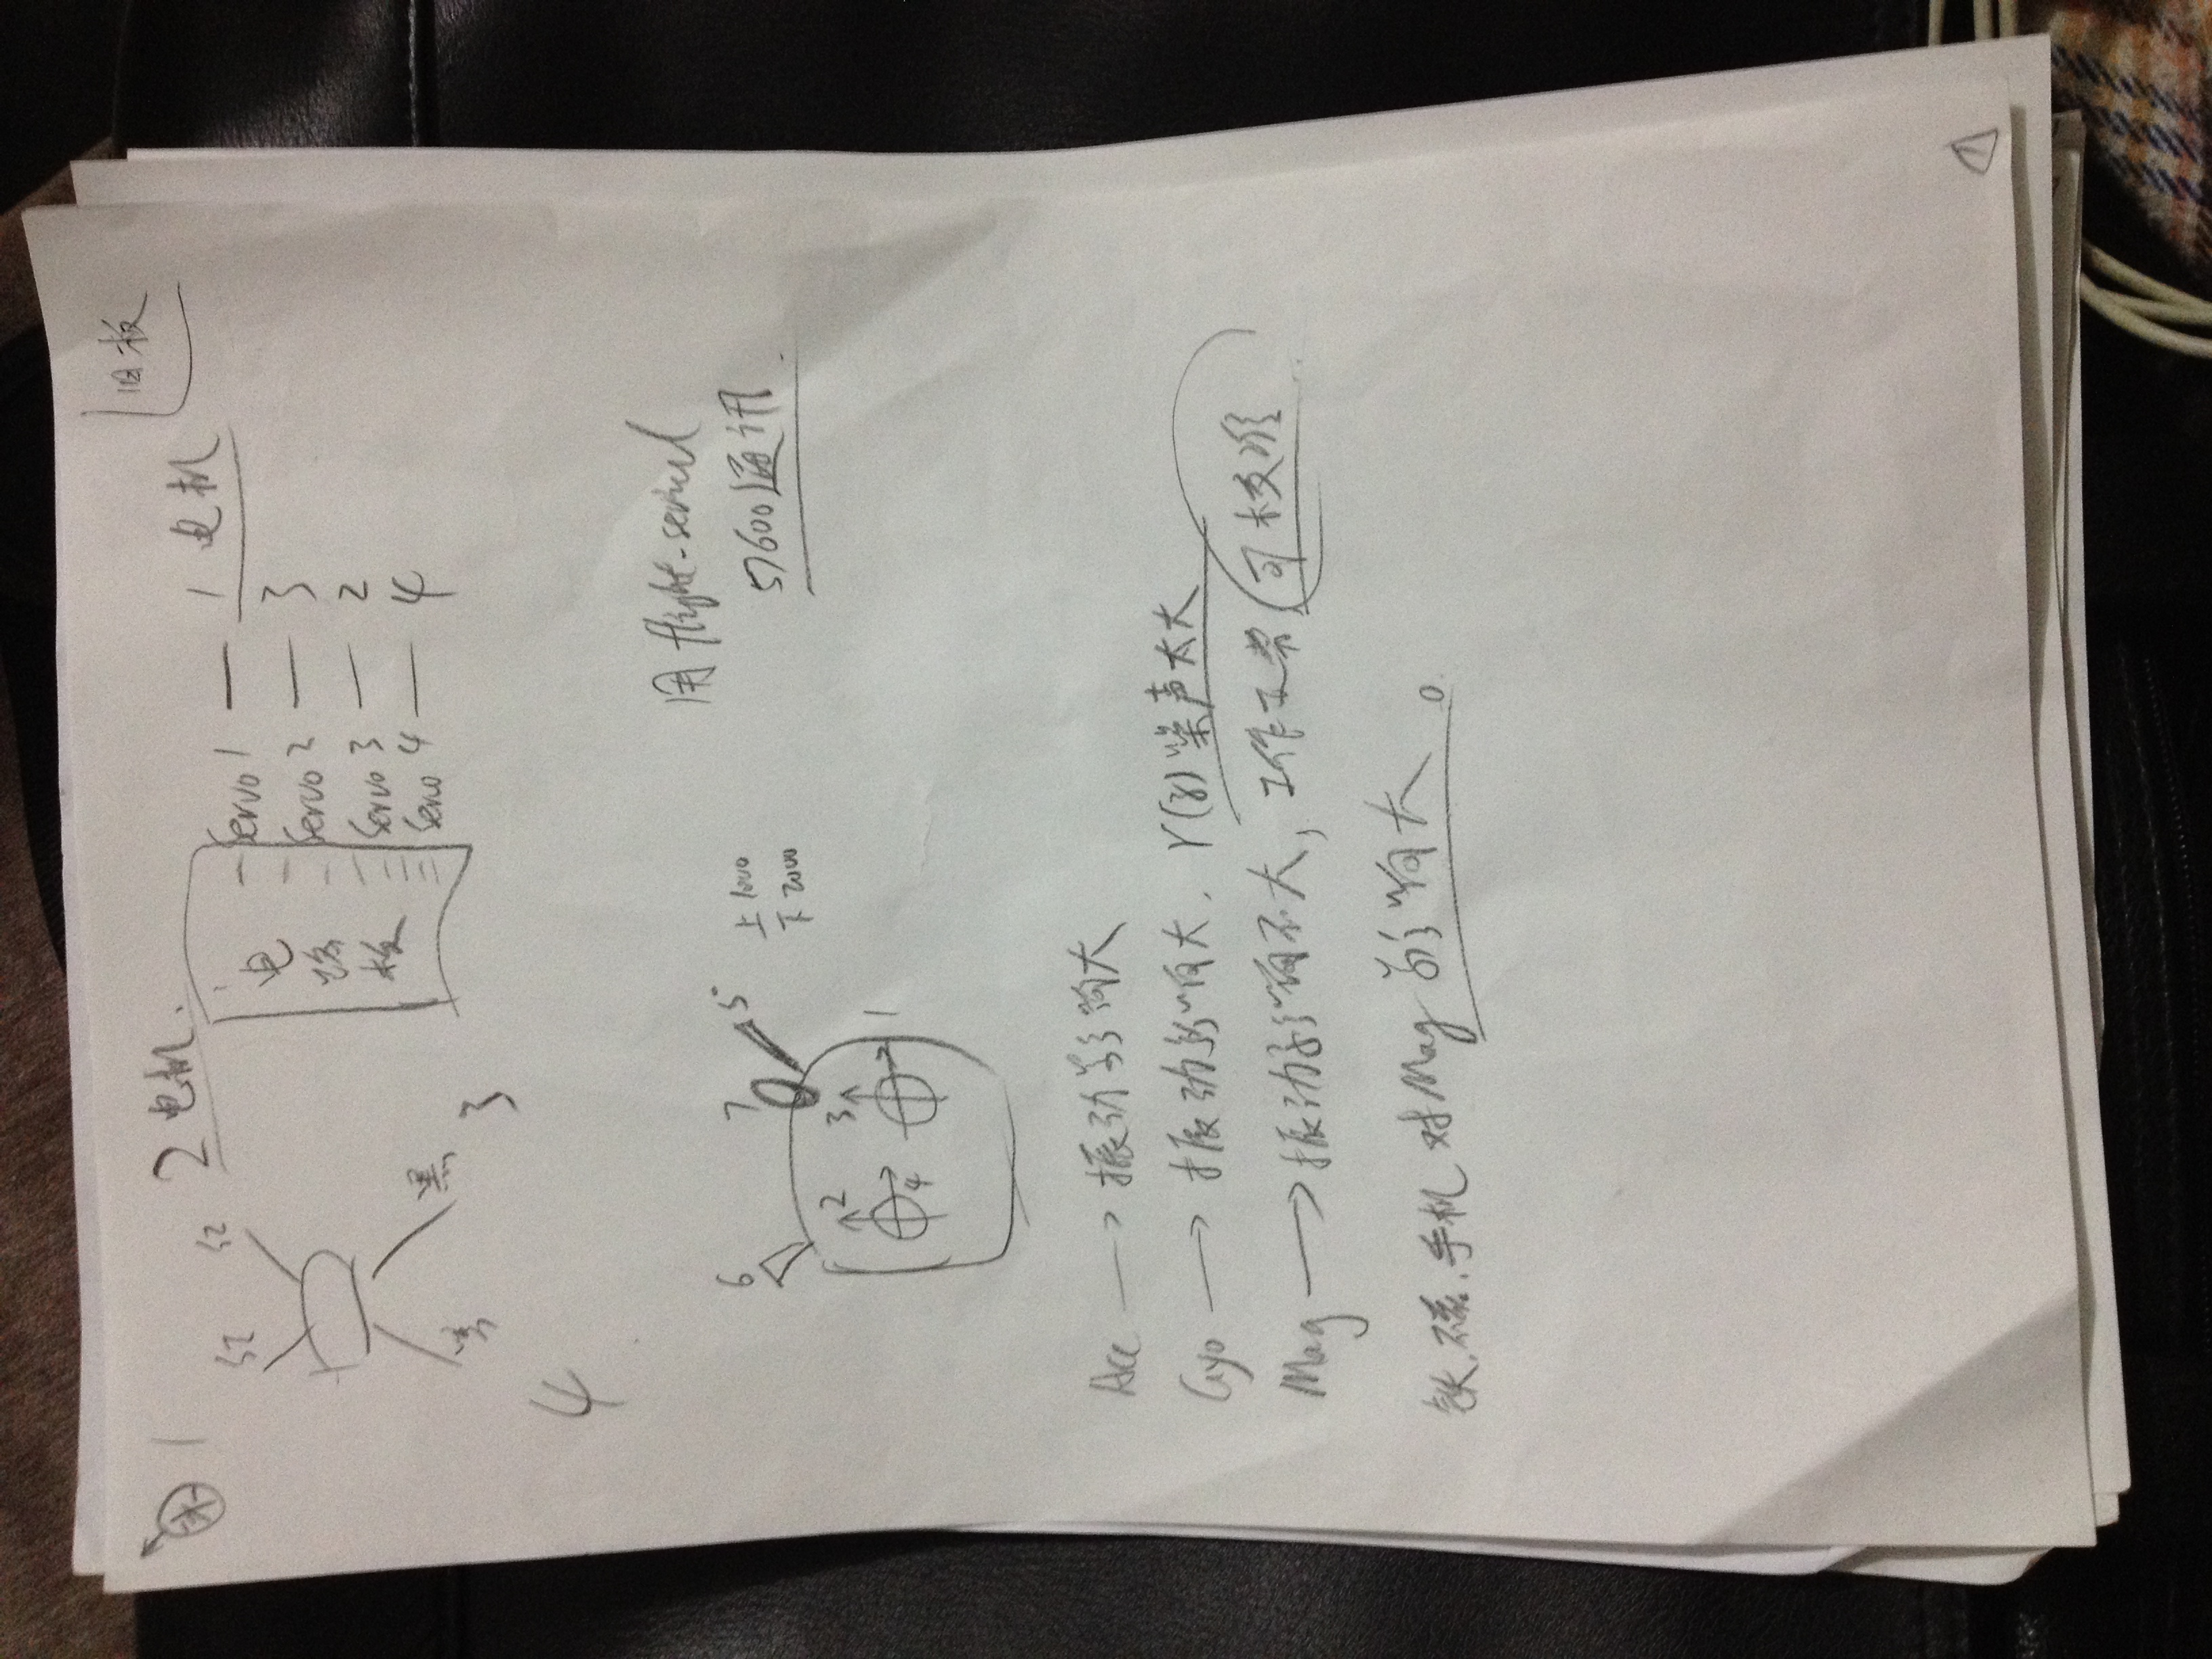 旧板
1
2 电机.
1 电机
红 红
电路板
Servo 1 — 1
Servo 2 — 3
Servo 3 — 2
Servo 4 — 4
黑 黑
3
4
用 flight-serial
57600通讯
6 7 5
上 1000
下 2000
2 3
4 1
Acc → 振动影响大
Gyo → 振动影响大. r(z)噪声太大
Mag → 振动影响不大, 工作正常 可校准
铁.磁.手机 对Mag影响大。